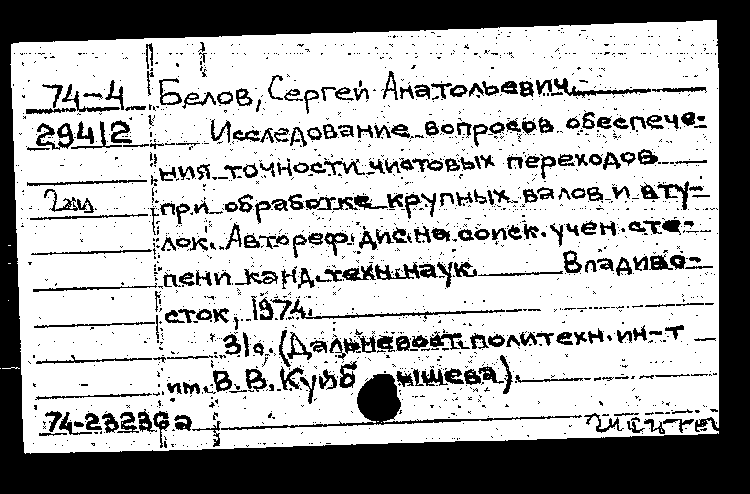 74-4 Белов, Сергей Анатольевич.
29412 Исследование вопросов обеспече-
ния точности чистовых переходов
2 экз при обработке крупных валов и вту-
лок. Автореф. дис. на соиск. учен. сте-
пени канд. техн. наук. Владиво-
сток, 1974.
31с. (Дальневост. политехн. ин-т
им. В. В. Куйб ышева).
74-23236а